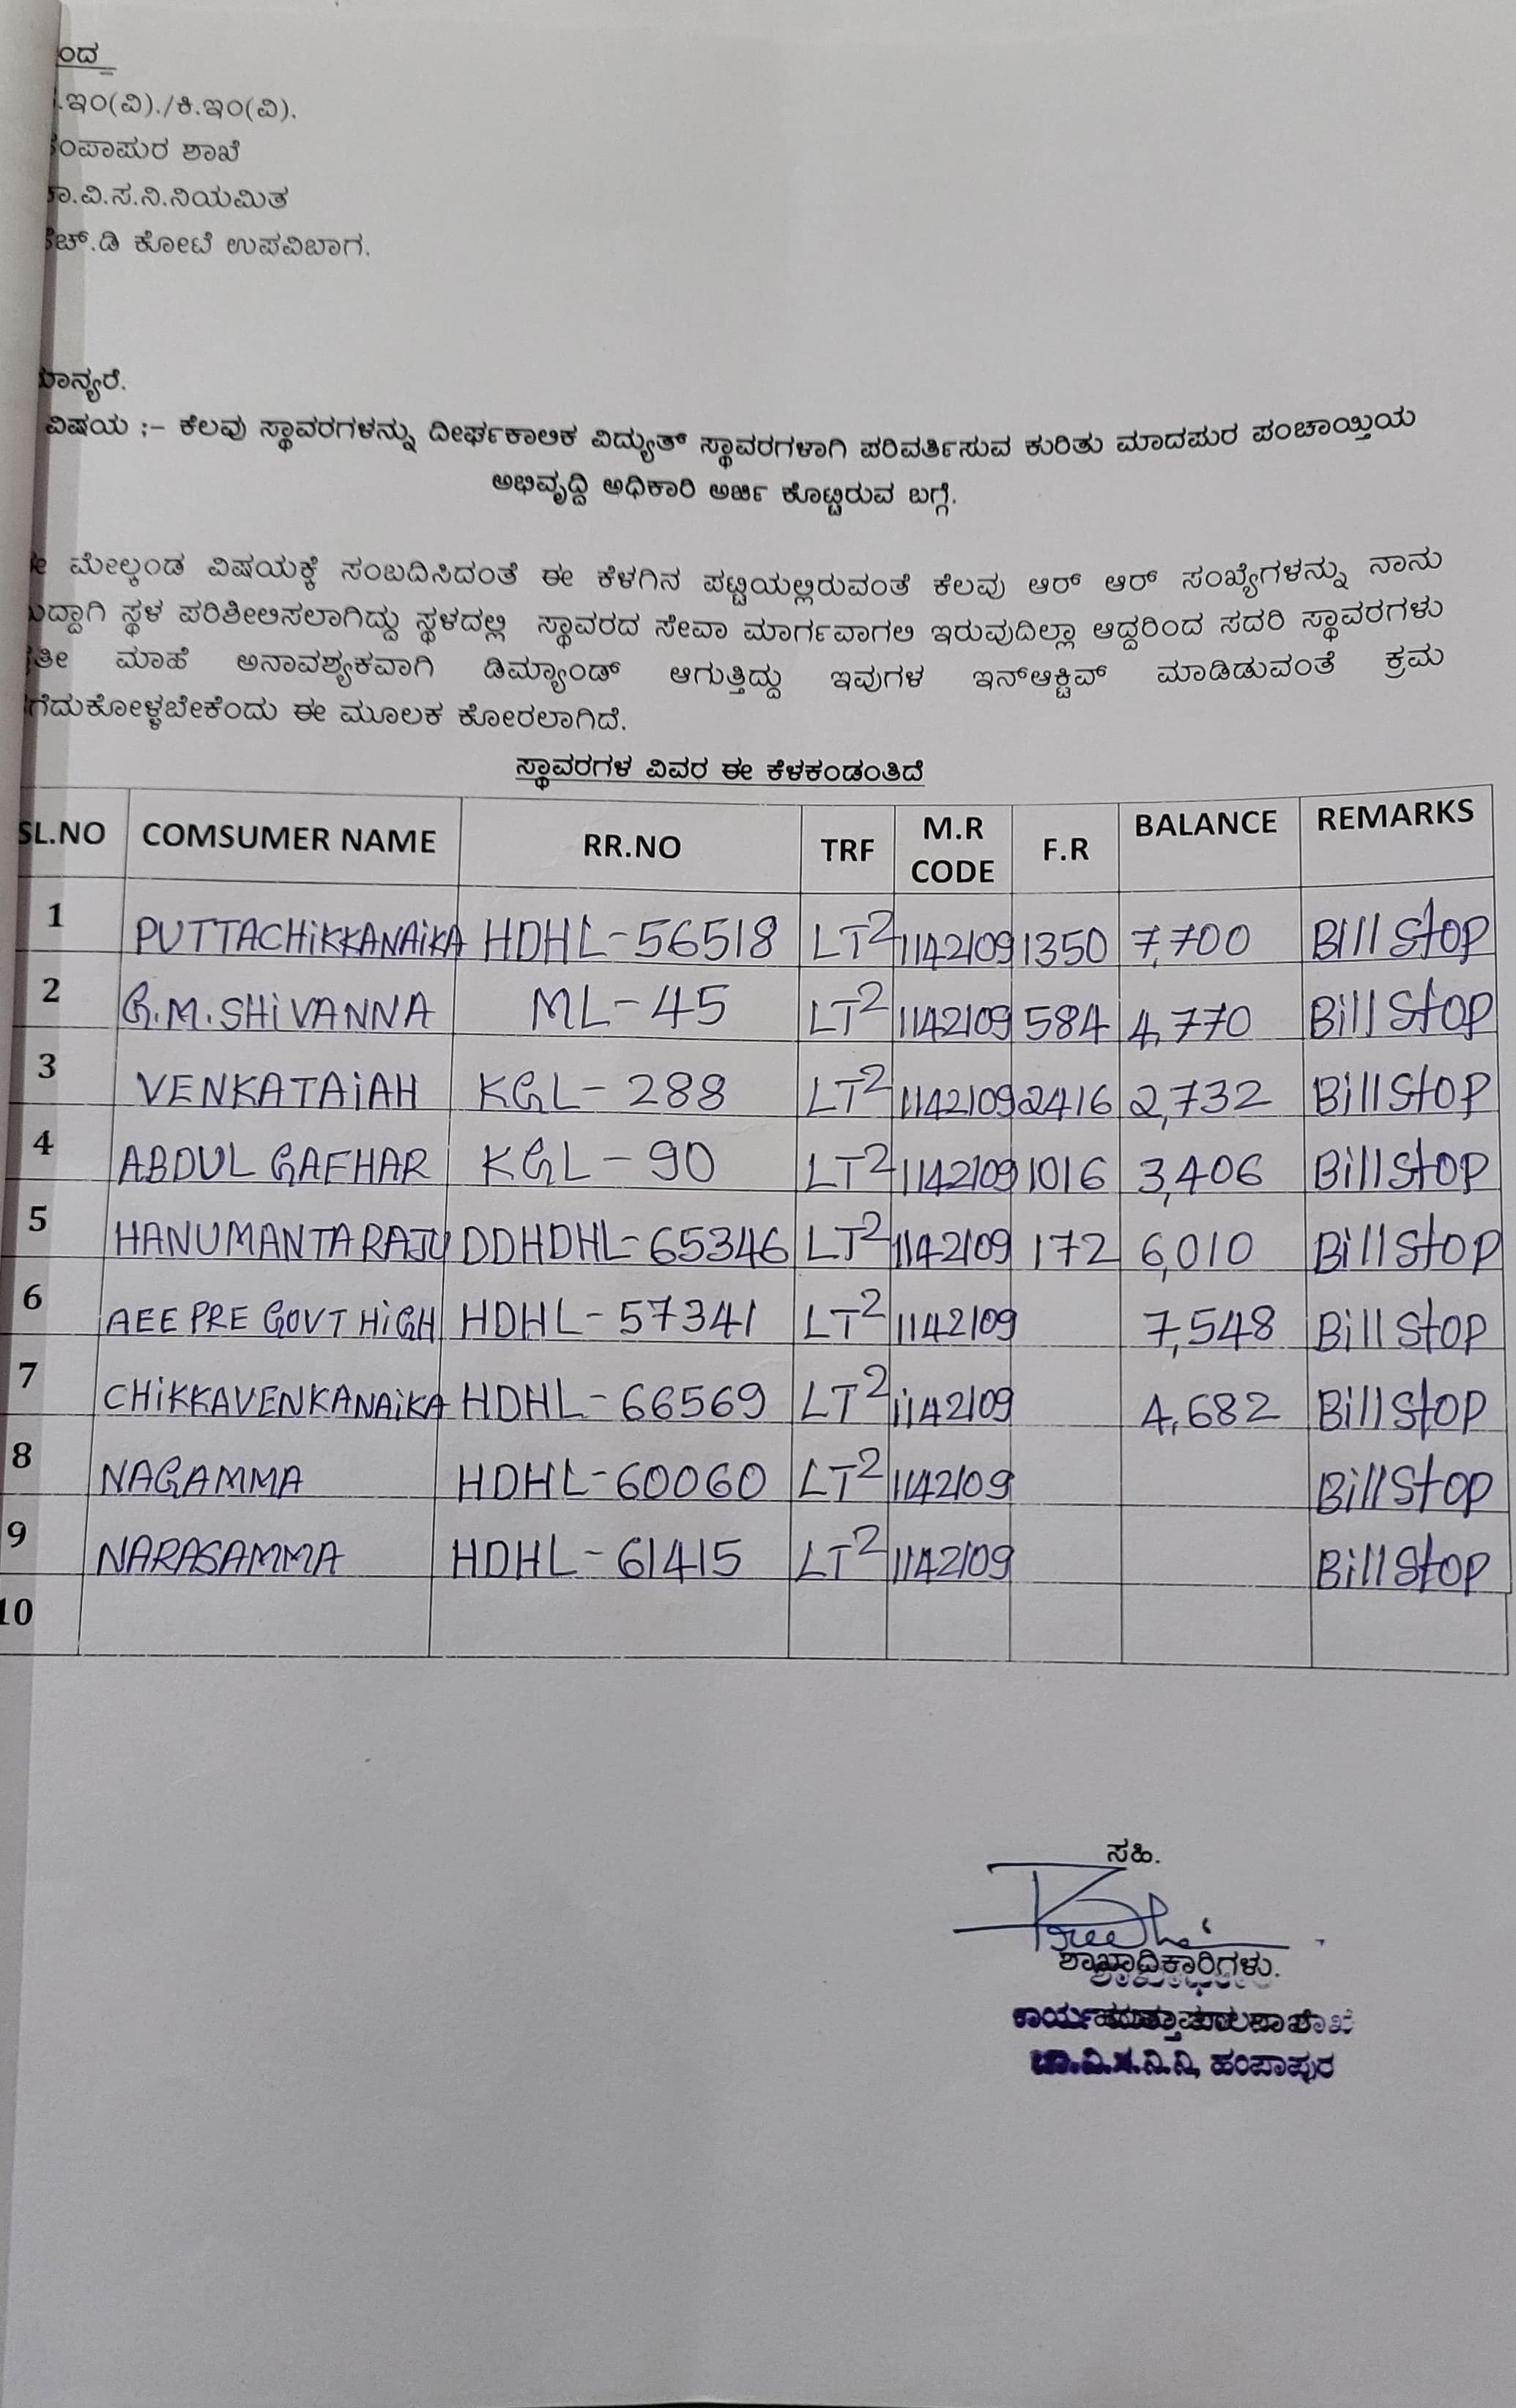 ಂದ
.ಇಂ(ವಿ)./ಕಿ.ಇಂ(ವಿ).
ಂಪಾಪುರ ಶಾಖೆ
.ವಿ.ಸ.ನಿ.ನಿಯಮಿತ
ಚ್.ಡಿ ಕೋಟೆ ಉಪವಿಬಾಗ.
ಾನ್ಯರೆ.
ವಿಷಯ :– ಕೆಲವು ಸ್ಥಾವರಗಳನ್ನು ದೀರ್ಘಕಾಲಿಕ ವಿದ್ಯುತ್ ಸ್ಥಾವರಗಳಾಗಿ ಪರಿವರ್ತಿಸುವ ಕುರಿತು ಮಾದಪುರ ಪಂಚಾಯ್ತಿಯ
ಅಭಿವೃದ್ದಿ ಅಧಿಕಾರಿ ಅರ್ಜಿ ಕೊಟ್ಟಿರುವ ಬಗ್ಗೆ.
ಮೇಲ್ಕಂಡ ವಿಷಯಕ್ಕೆ ಸಂಬದಿಸಿದಂತೆ ಈ ಕೆಳಗಿನ ಪಟ್ಟಿಯಲ್ಲಿರುವಂತೆ ಕೆಲವು ಆರ್ ಆರ್ ಸಂಖ್ಯೆಗಳನ್ನು ನಾನು
ದ್ದಾಗಿ ಸ್ಥಳ ಪರಿಶೀಲಿಸಲಾಗಿದ್ದು ಸ್ಥಳದಲ್ಲಿ ಸ್ಥಾವರದ ಸೇವಾ ಮಾರ್ಗವಾಗಲಿ ಇರುವುದಿಲ್ಲಾ ಆದ್ದರಿಂದ ಸದರಿ ಸ್ಥಾವರಗಳು
ತೀ ಮಾಹೆ ಅನಾವಶ್ಯಕವಾಗಿ ಡಿಮ್ಯಾಂಡ್ ಆಗುತ್ತಿದ್ದು ಇವುಗಳ ಇನ್‌ಆಕ್ಟಿವ್ ಮಾಡಿಡುವಂತೆ ಕ್ರಮ
ಗೆದುಕೋಳ್ಳಬೇಕೆಂದು ಈ ಮೂಲಕ ಕೋರಲಾಗಿದೆ.
ಸ್ಥಾವರಗಳ ವಿವರ ಈ ಕೆಳಕಂಡಂತಿದೆ
SL.NO COMSUMER NAME RR.NO TRF M.R CODE F.R BALANCE REMARKS
1 PUTTACHiKKANAiKA HDHL-56518 LT2 1142109 1350 7,700 Bill Stop
2 G.M.SHiVANNA ML-45 LT2 1142109 584 4,770 Bill Stop
3 VENKATAiAH KGL-288 LT2 1142109 2416 2,732 Bill Stop
4 ABDUL GAFHAR KGL-90 LT2 1142109 1016 3,406 Bill Stop
5 HANUMANTARAJU DDHDHL-65346 LT2 1142109 172 6,010 Bill Stop
6 AEE PRE GOVT HiGH HDHL-57341 LT2 1142109 7,548 Bill Stop
7 CHiKKAVENKANAiKA HDHL-66569 LT2 1142109 4,682 Bill Stop
8 NAGAMMA HDHL-60060 LT2 1142109 Bill Stop
9 NARASAMMA HDHL-61415 LT2 1142109 Bill Stop
10
ಸಹಿ.
ಶಾಖಾದಿಕಾರಿಗಳು.
ಚಾ.ವಿ.ಸ.ನಿ.ನಿ, ಹಂಪಾಪುರ